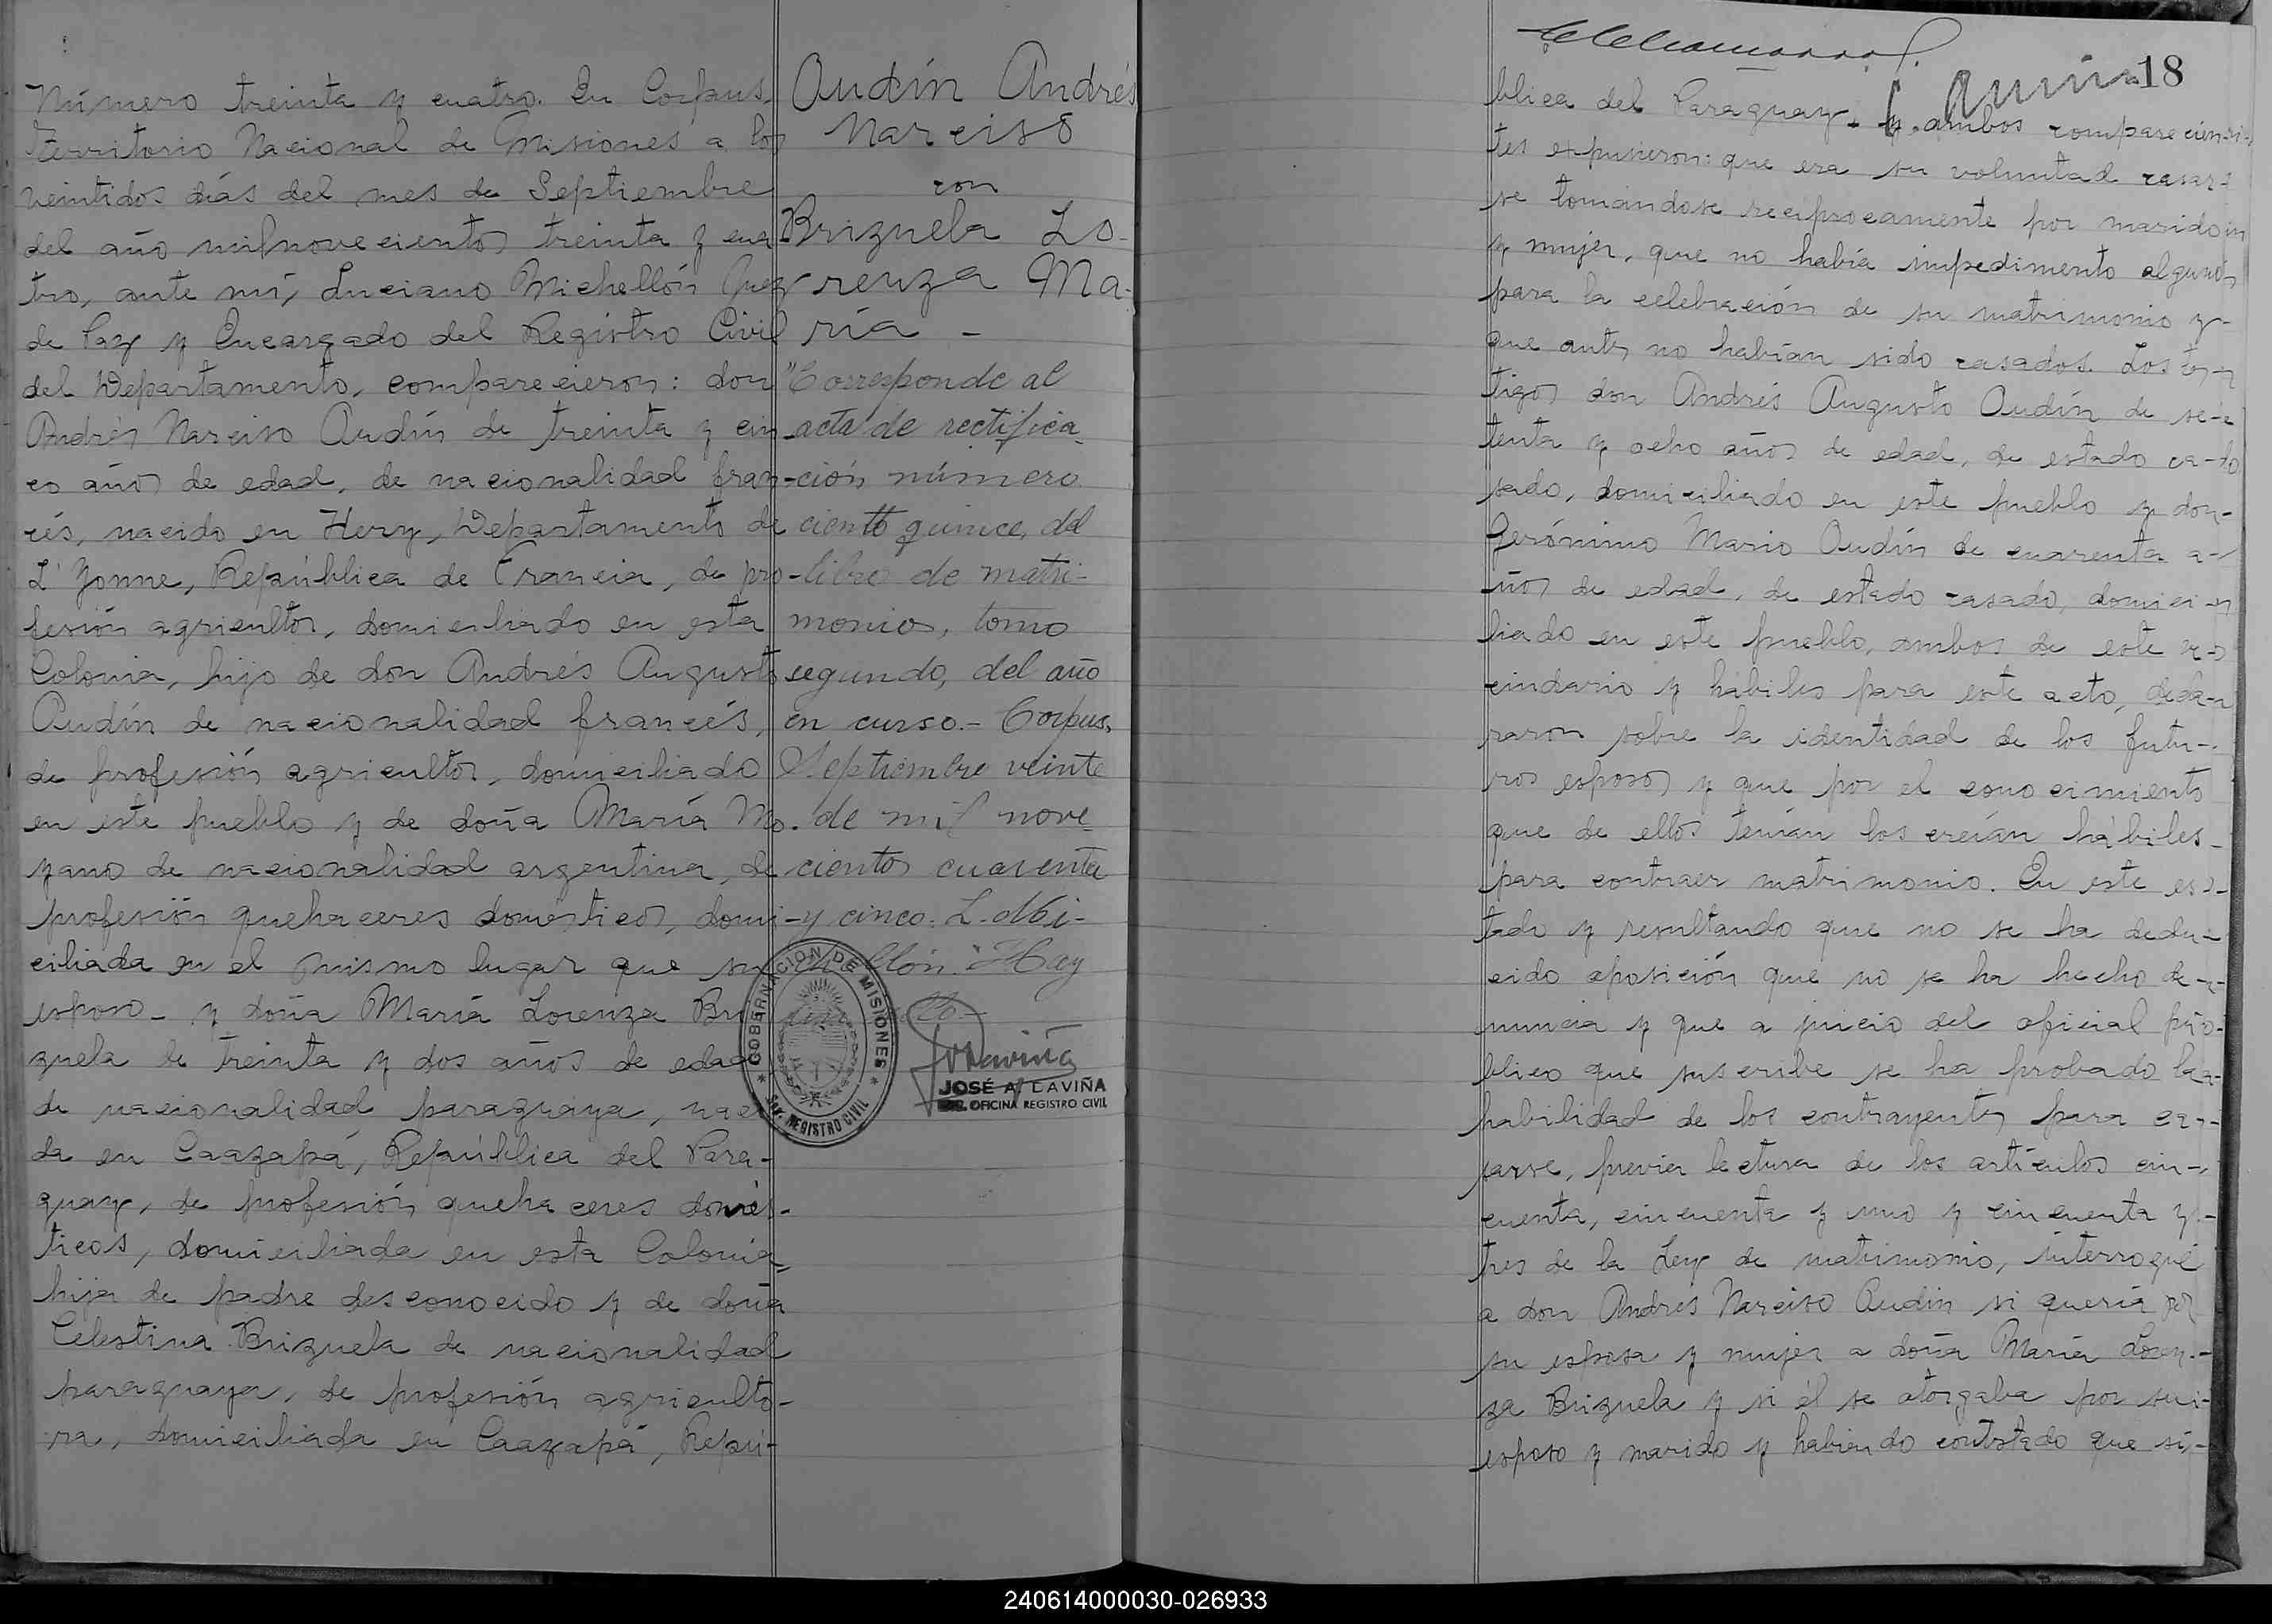 Número treinta y cuatro. En Corpus,
Territorio Nacional de Misiones a los
veintidos días del mes de Septiembre
del año milnovecientos treinta y cua
tro, ante mí, Luciano Michellón Juez
de Paz y Encargado del Registro Civil
del Departamento, comparecieron: don
Andrés Narciso Oudín de treinta y cin
co años de edad, de nacionalidad fran-
cés, nacido en Hery, Departamento de
L'Yonne, República de Francia, de pro-
fesión agricultor, domiciliado en esta
Colonia, hijo de don Andrés Augusto
Oudín de nacionalidad francés,
de profesión agricultor, domiciliado
en este pueblo y de doña María Mo.
yano de nacionalidad argentina, de
profesión quehaceres domésticos, domi-
ciliada en el mismo lugar que su
esposo - y doña María Lorenza Bri
zuela de treinta y dos años de edad
de nacionalidad paraguaya, naci
da en Caazapá, República del Para-
guay, de profesión quehaceres domés-
ticos, domiciliada en esta Colonia,
hija de padre desconocido y de doña
Celestina Brizuela de nacionalidad
paraguaya, de profesión agriculto-
ra, domiciliada en Caazapá, Repú-
Oudín Andrés
Narciso
con
Brizuela Lo-
renza Ma-
ría -
"Corresponde al
acta de rectifica
ción número
ciento quince, del
libro de matri-
monios, tomo
segundo, del año
en curso.- Corpus,
Septiembre veinte
de mil nove
cientos cuarenta
y cinco. L. Mi-
chellón. Hay
GOBERNACION DE MISIONES
REGISTRO CIVIL
JOSÉ A. LAVIÑA
OFICINA REGISTRO CIVIL
18
blica del Paraguay - y ambos comparecien-
tes expusieron: que era su voluntad casar-
se tomándose recíprocamente por marido
y mujer, que no había impedimento alguno
para la celebración de su matrimonio y-
que antes no habían sido casados. Los tes-
tigos don Andrés Augusto Oudín de se-
tenta y ocho años de edad, de estado ca-
sado, domiciliado en este pueblo y don-
Gerónimo Mario Oudín de cuarenta a-
ños de edad, de estado casado, domici-
liado en este pueblo, ambos de este ve-
cindario y hábiles para este acto, decla-
raron sobre la identidad de los futu-
ros esposos y que por el conocimiento
que de ellos tenían los creían hábiles-
para contraer matrimonio. En este es-
tado y resultando que no se ha dedu-
cido oposición que no se ha hecho de-
nuncia y que a juicio del oficial pú-
blico que suscribe se ha probado la-
habilidad de los contrayentes para ca-
sarse, previa lectura de los artículos cin-
cuenta, cincuenta y uno y cincuenta y-
tres de la Ley de matrimonio, interrogué
a don Andrés Narciso Oudin si quería por
su esposa y mujer a doña María Loren-
za Brizuela y si él se otorgaba por su-
esposo y marido y habiendo contestado que sí-
240614000030-026933